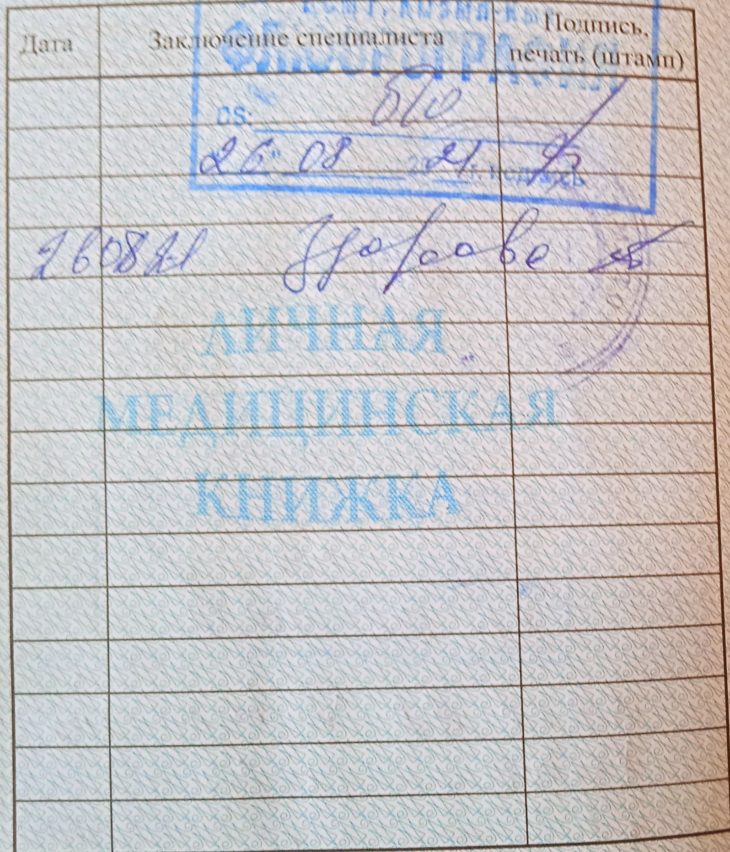 Дата Заключение специалиста Подпись, печать (штамп)
ФЛЮОРОГРАФИЯ
DS: б/о
26 08 21
260821 Здорова
ЛИЧНАЯ
МЕДИЦИНСКАЯ
КНИЖКА